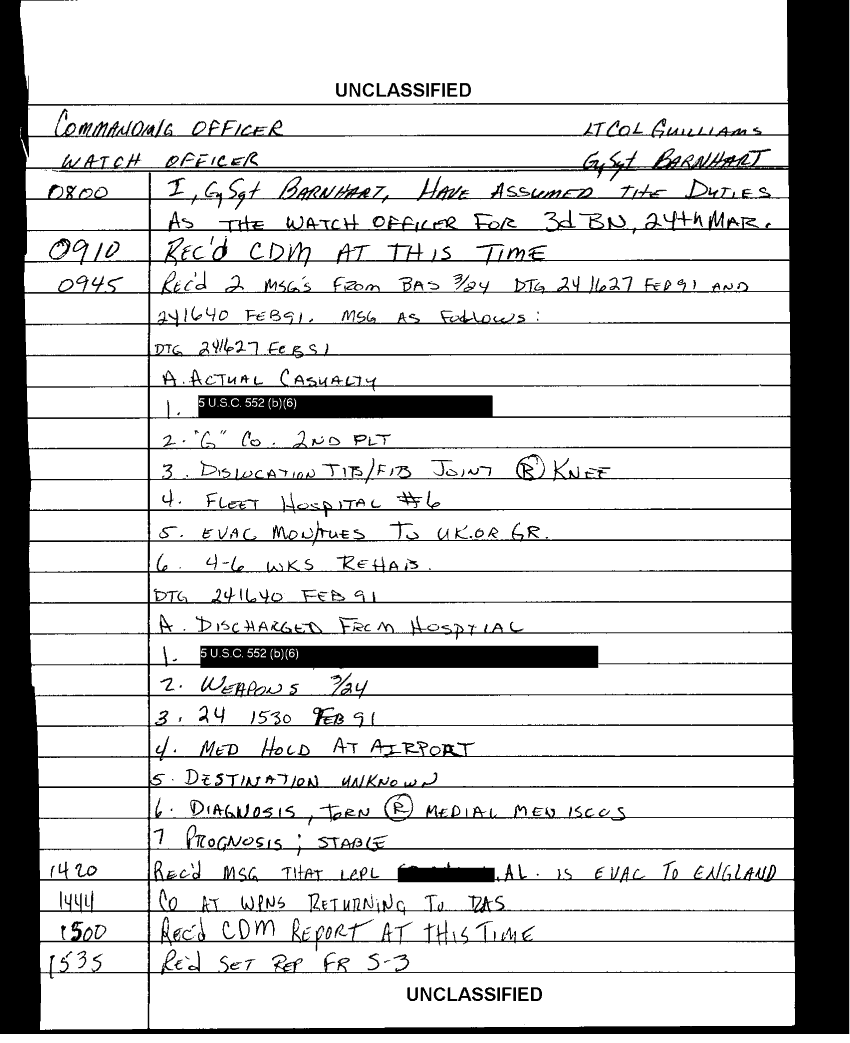 UNCLASSIFIED
COMMANDING OFFICER LTCOL GUILLIAMS
WATCH OFFICER GySgt BARNHART
0800 I, GySgt BARNHART, HAVE ASSUMED THE DUTIES
AS THE WATCH OFFICER FOR 3d BN, 24th MAR.
0910 REC'd CDM AT THIS TIME
0945 REC'd 2 MSG'S FROM BAS 3/24 DTG 241627 FEB91 AND
241640 FEB91. MSG AS FOLLOWS:
DTG 241627 FEB91
A. ACTUAL CASUALTY
1. 5 U.S.C. 552 (b)(6)
2. "G" CO. 2ND PLT
3. DISLOCATION TIB/FIB JOINT (R) KNEE
4. FLEET HOSPITAL #6
5. EVAC MON/TUES TO UK.OR GR.
6. 4-6 WKS REHAB.
DTG 241640 FEB 91
A. DISCHARGED FROM HOSPTIAL
1. 5 U.S.C. 552 (b)(6)
2. WEAPONS 3/24
3. 24 1530 FEB 91
4. MED HOLD AT AIRPORT
5. DESTINATION UNKNOWN
6. DIAGNOSIS, TORN (R) MEDIAL MENISCUS
7 PROGNOSIS; STABLE
1420 REC'd MSG THAT LCPL , AL. IS EVAC TO ENGLAND
1444 CO AT WPNS RETURNING TO
1500 REC'd CDM REPORT AT THIS TIME
1535 RE'd SET REP FR S-3
UNCLASSIFIED